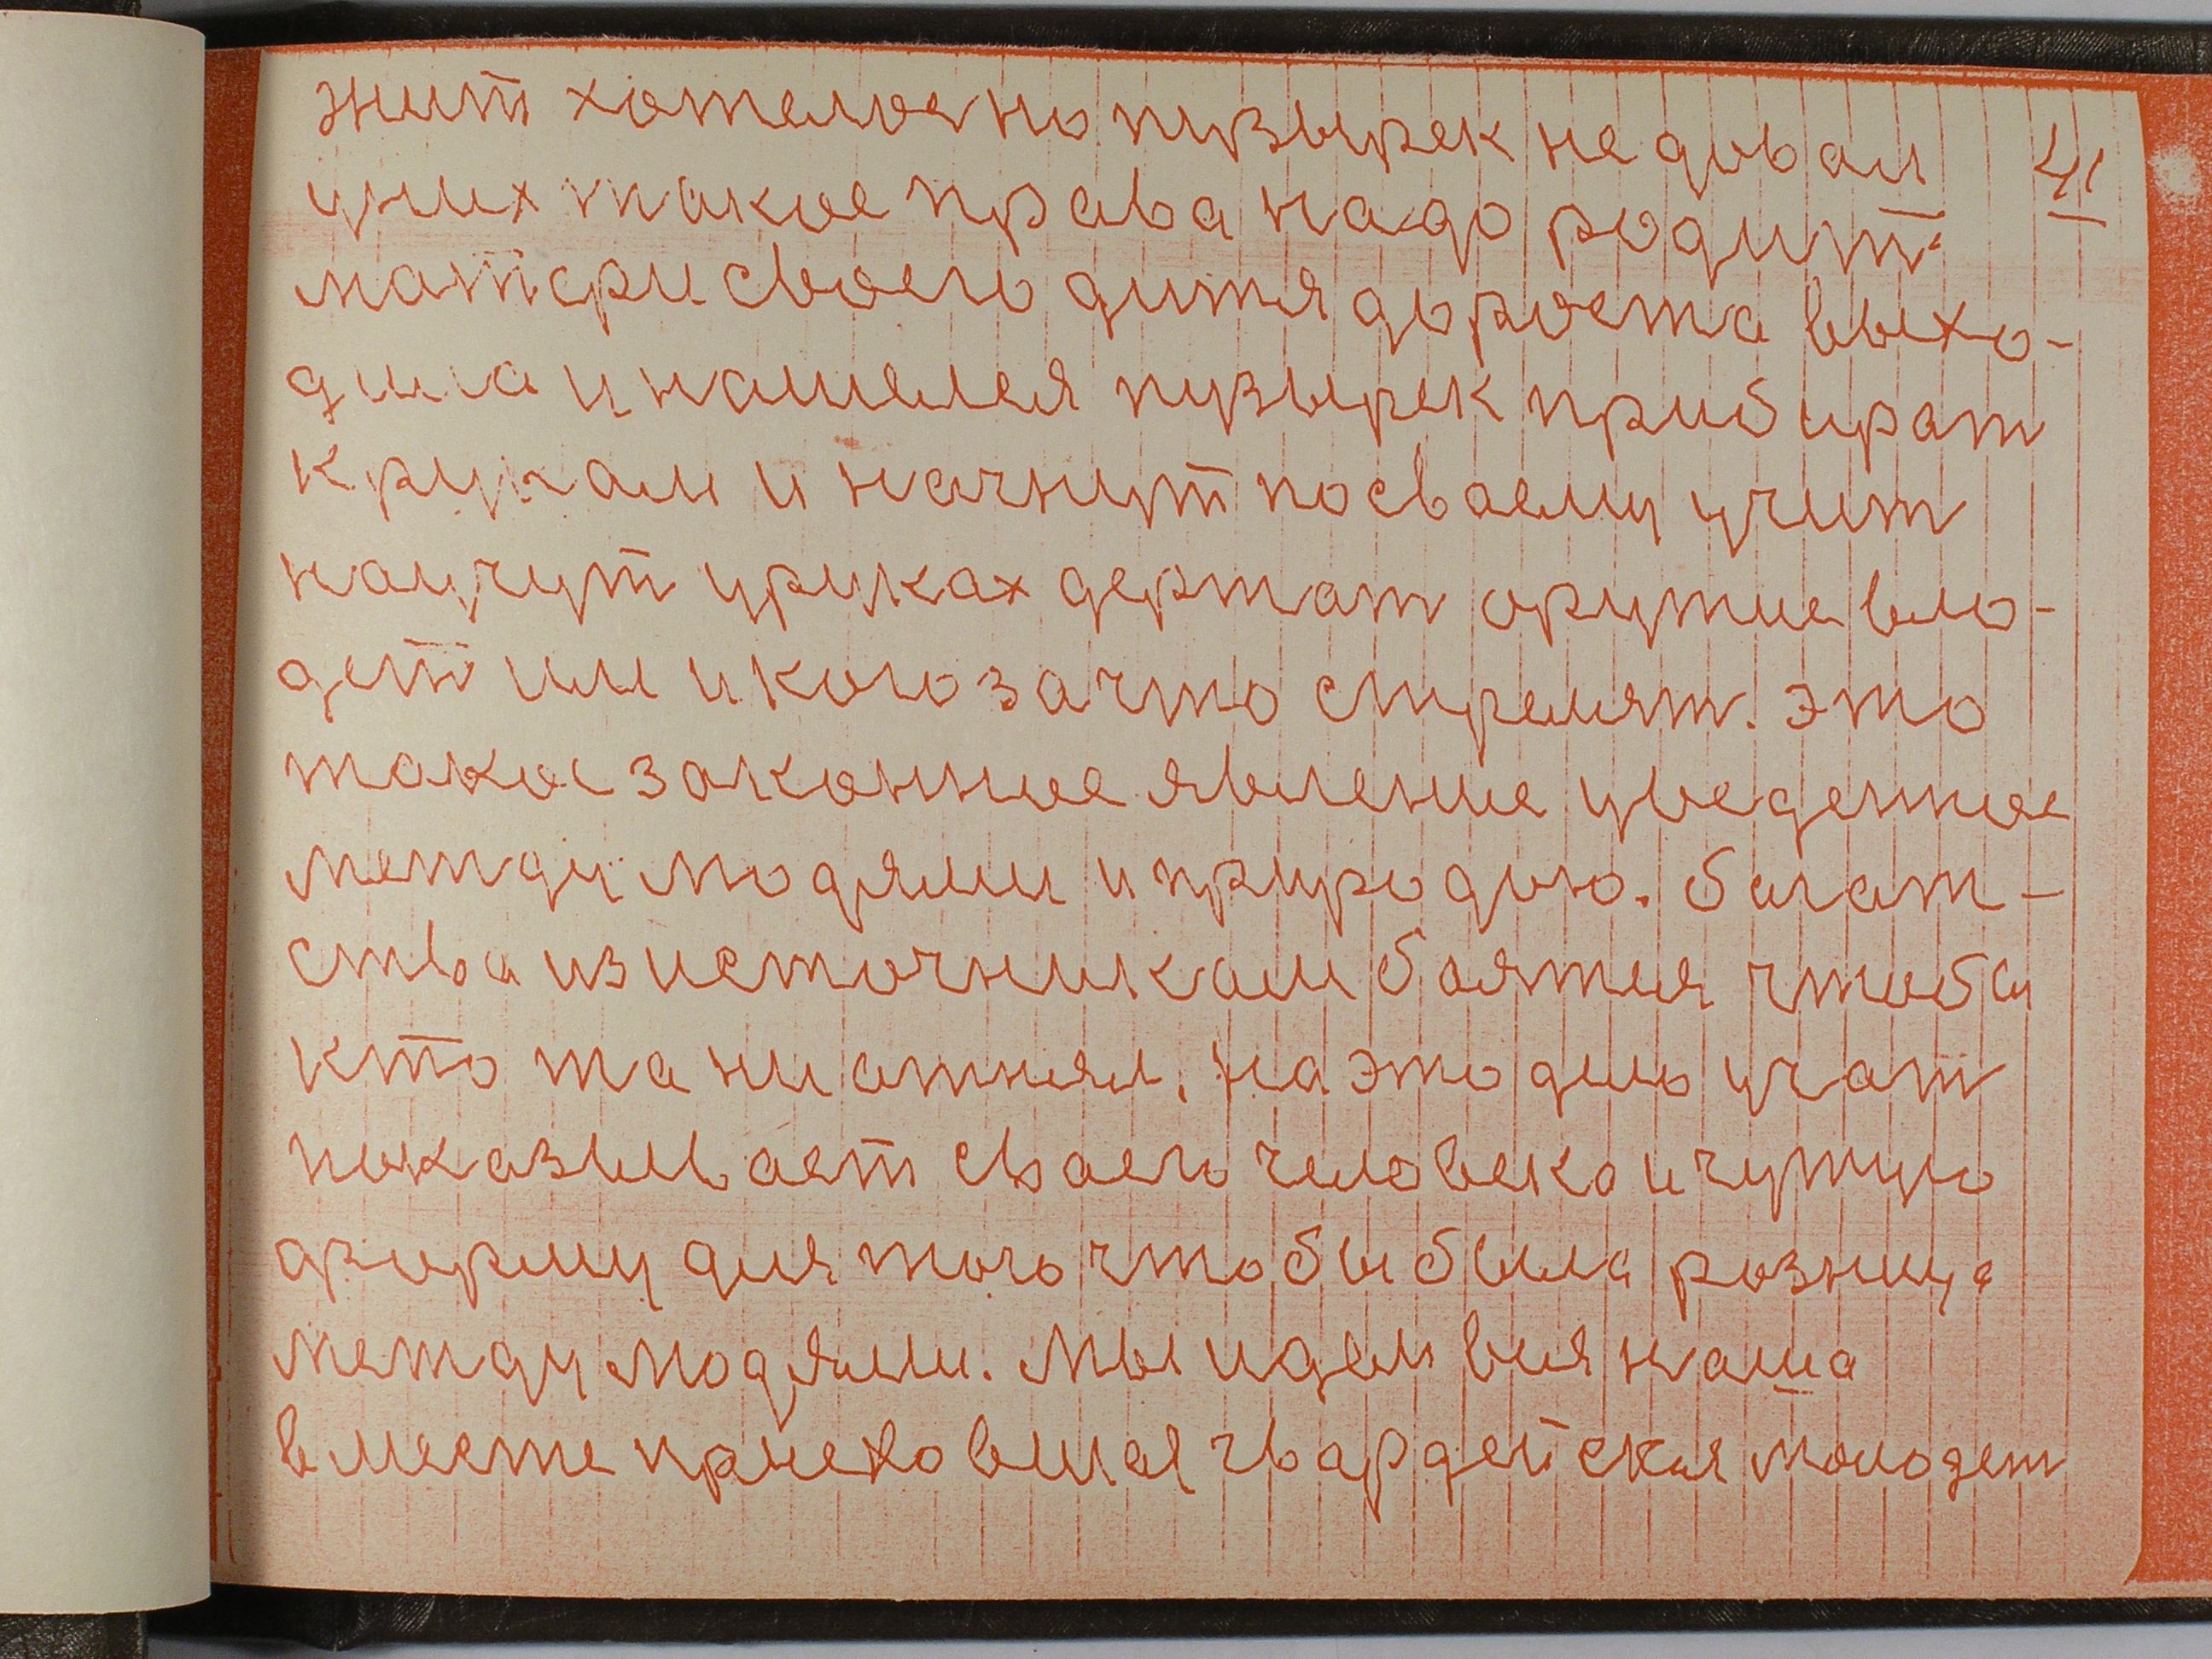 жит хотелос но пузырек не довал 41
у них такое права надо родит
матери своего дитя до роста выхо-
дила и нашелся пузырек прибират
к рукам и начнут по сваему учит
научут у руках держат оружие вло-
дет им и кого за что стрелят. это
токое законное явление уведенное
между людями и природою. багат-
ства из источникам боятся чтобы
кто та ни отнял. на это дило учат
показывает сваего человека и чужую
форму для того чтобы была розница
между людями. Мы идем вся наша
вместе приеховшая гвардейская молодеж